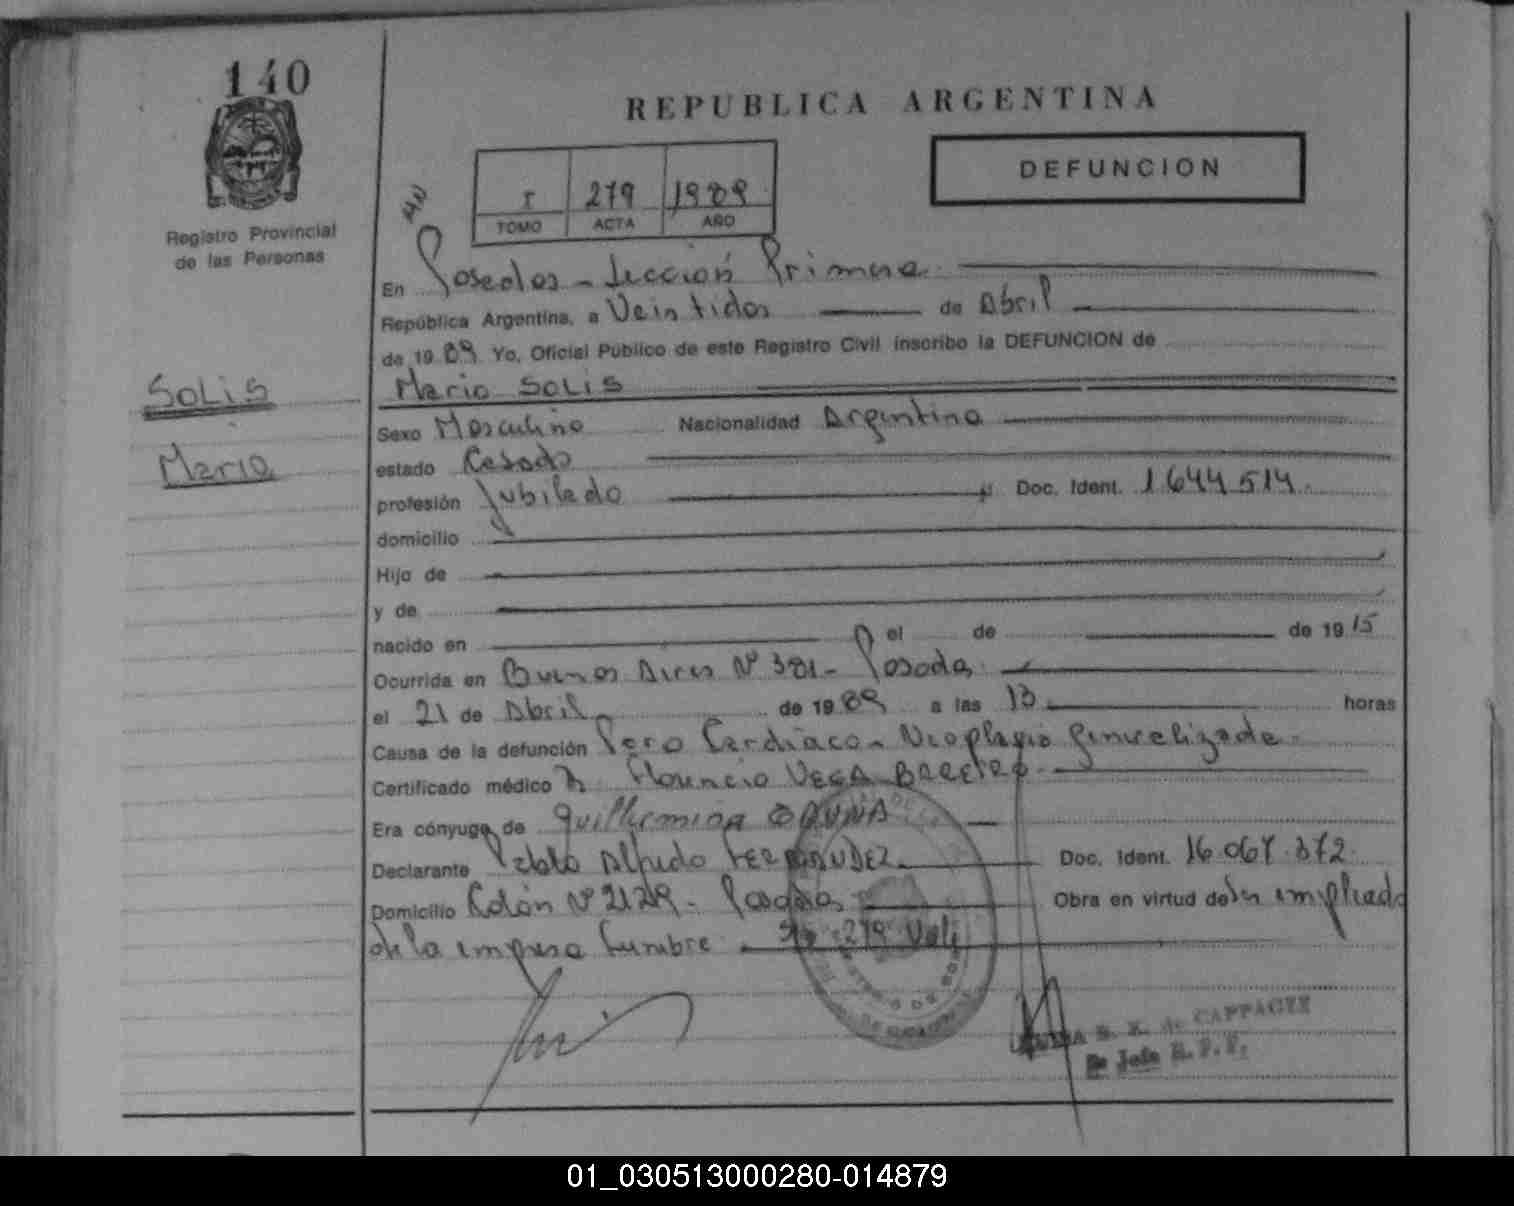 140
REPUBLICA ARGENTINA
DEFUNCION
I 279 1989
TOMO ACTA AÑO
Registro Provincial
de las Personas
En Posadas - Sección Primera
República Argentina, a Veintidos de Abril
de 19 89 Yo, Oficial Público de este Registro Civil inscribo la DEFUNCION de
SOLIS
Mario
Mario SOLIS
Sexo Masculino Nacionalidad Argentina
estado Casado
profesión Jubilado Doc. Ident. 1644514
domicilio
Hijo de
y de
nacido en el de de 19 15
Ocurrida en Buenos Aires Nº 381 - Posadas
el 21 de Abril de 19 89 a las 13 horas
Causa de la defunción Paro Cardiaco - Neoplasia Generalizada
Certificado médico Florencio VEGA
Era cónyuge de Guillermina
Declarante Pablo Alfredo FERNANDEZ Doc. Ident. 16.067.372
Domicilio Colón Nº - Posadas Obra en virtud de Ser empleado
de la empresa 279 Vale
de CAPPAGLI
Jefe R. P. P.
01_030513000280-014879